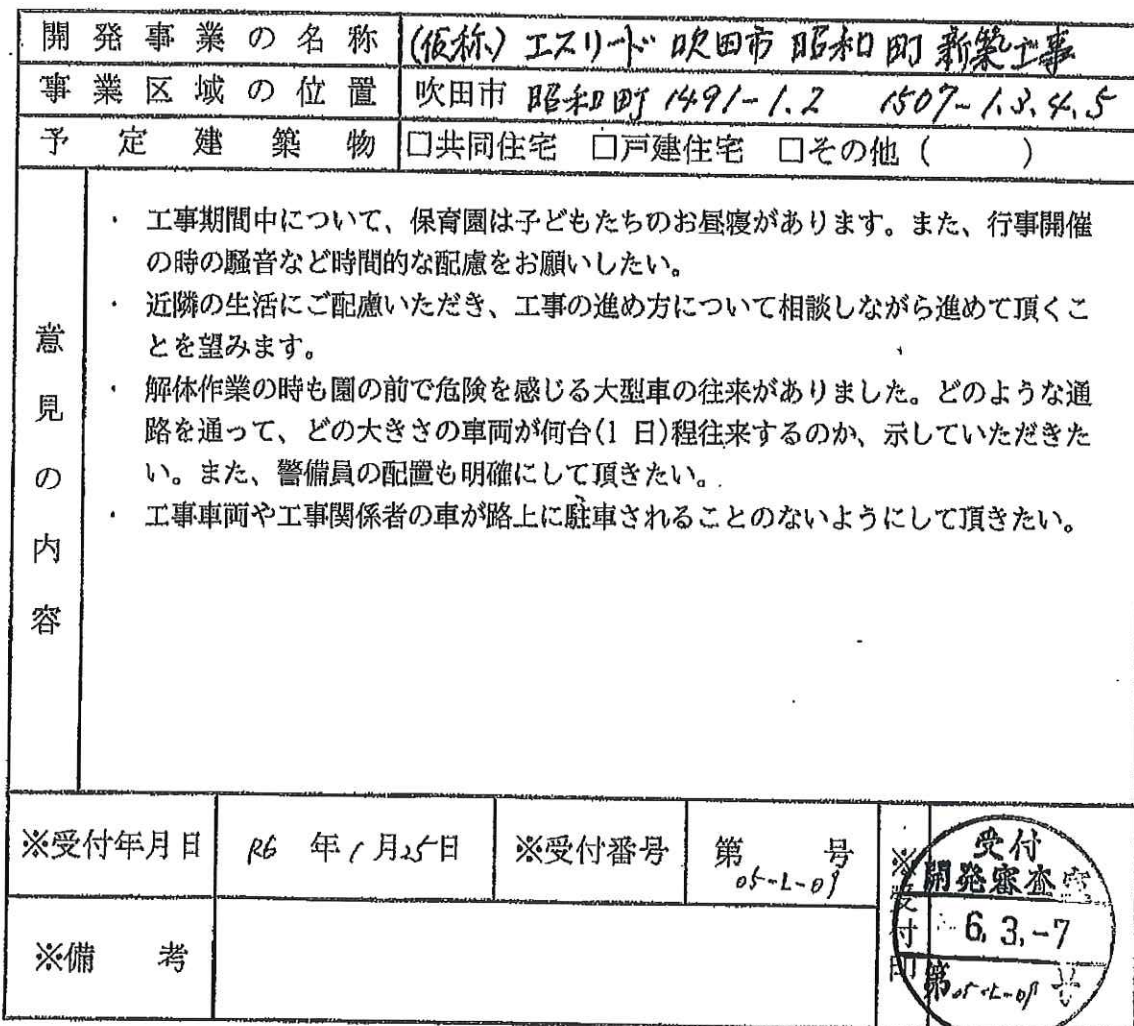 開発事業の名称 (仮称) エスリード 吹田市 昭和町 新築工事
事業区域の位置 吹田市 昭和町 1491-1.2 1507-1.3.4.5
予定建築物 □共同住宅 □戸建住宅 □その他 ( )
意見の内容
・ 工事期間中について、保育園は子どもたちのお昼寝があります。また、行事開催
の時の騒音など時間的な配慮をお願いしたい。
・ 近隣の生活にご配慮いただき、工事の進め方について相談しながら進めて頂くこ
とを望みます。
・ 解体作業の時も園の前で危険を感じる大型車の往来がありました。どのような通
路を通って、どの大きさの車両が何台(1 日)程往来するのか、示していただきた
い。また、警備員の配置も明確にして頂きたい。
・ 工事車両や工事関係者の車が路上に駐車されることのないようにして頂きたい。
※受付年月日 R6 年 1 月 25 日 ※受付番号 第 05-L-09 号
※受付印
受付
開発審査室
6.3.-7
第 05-L-09 号
※備考